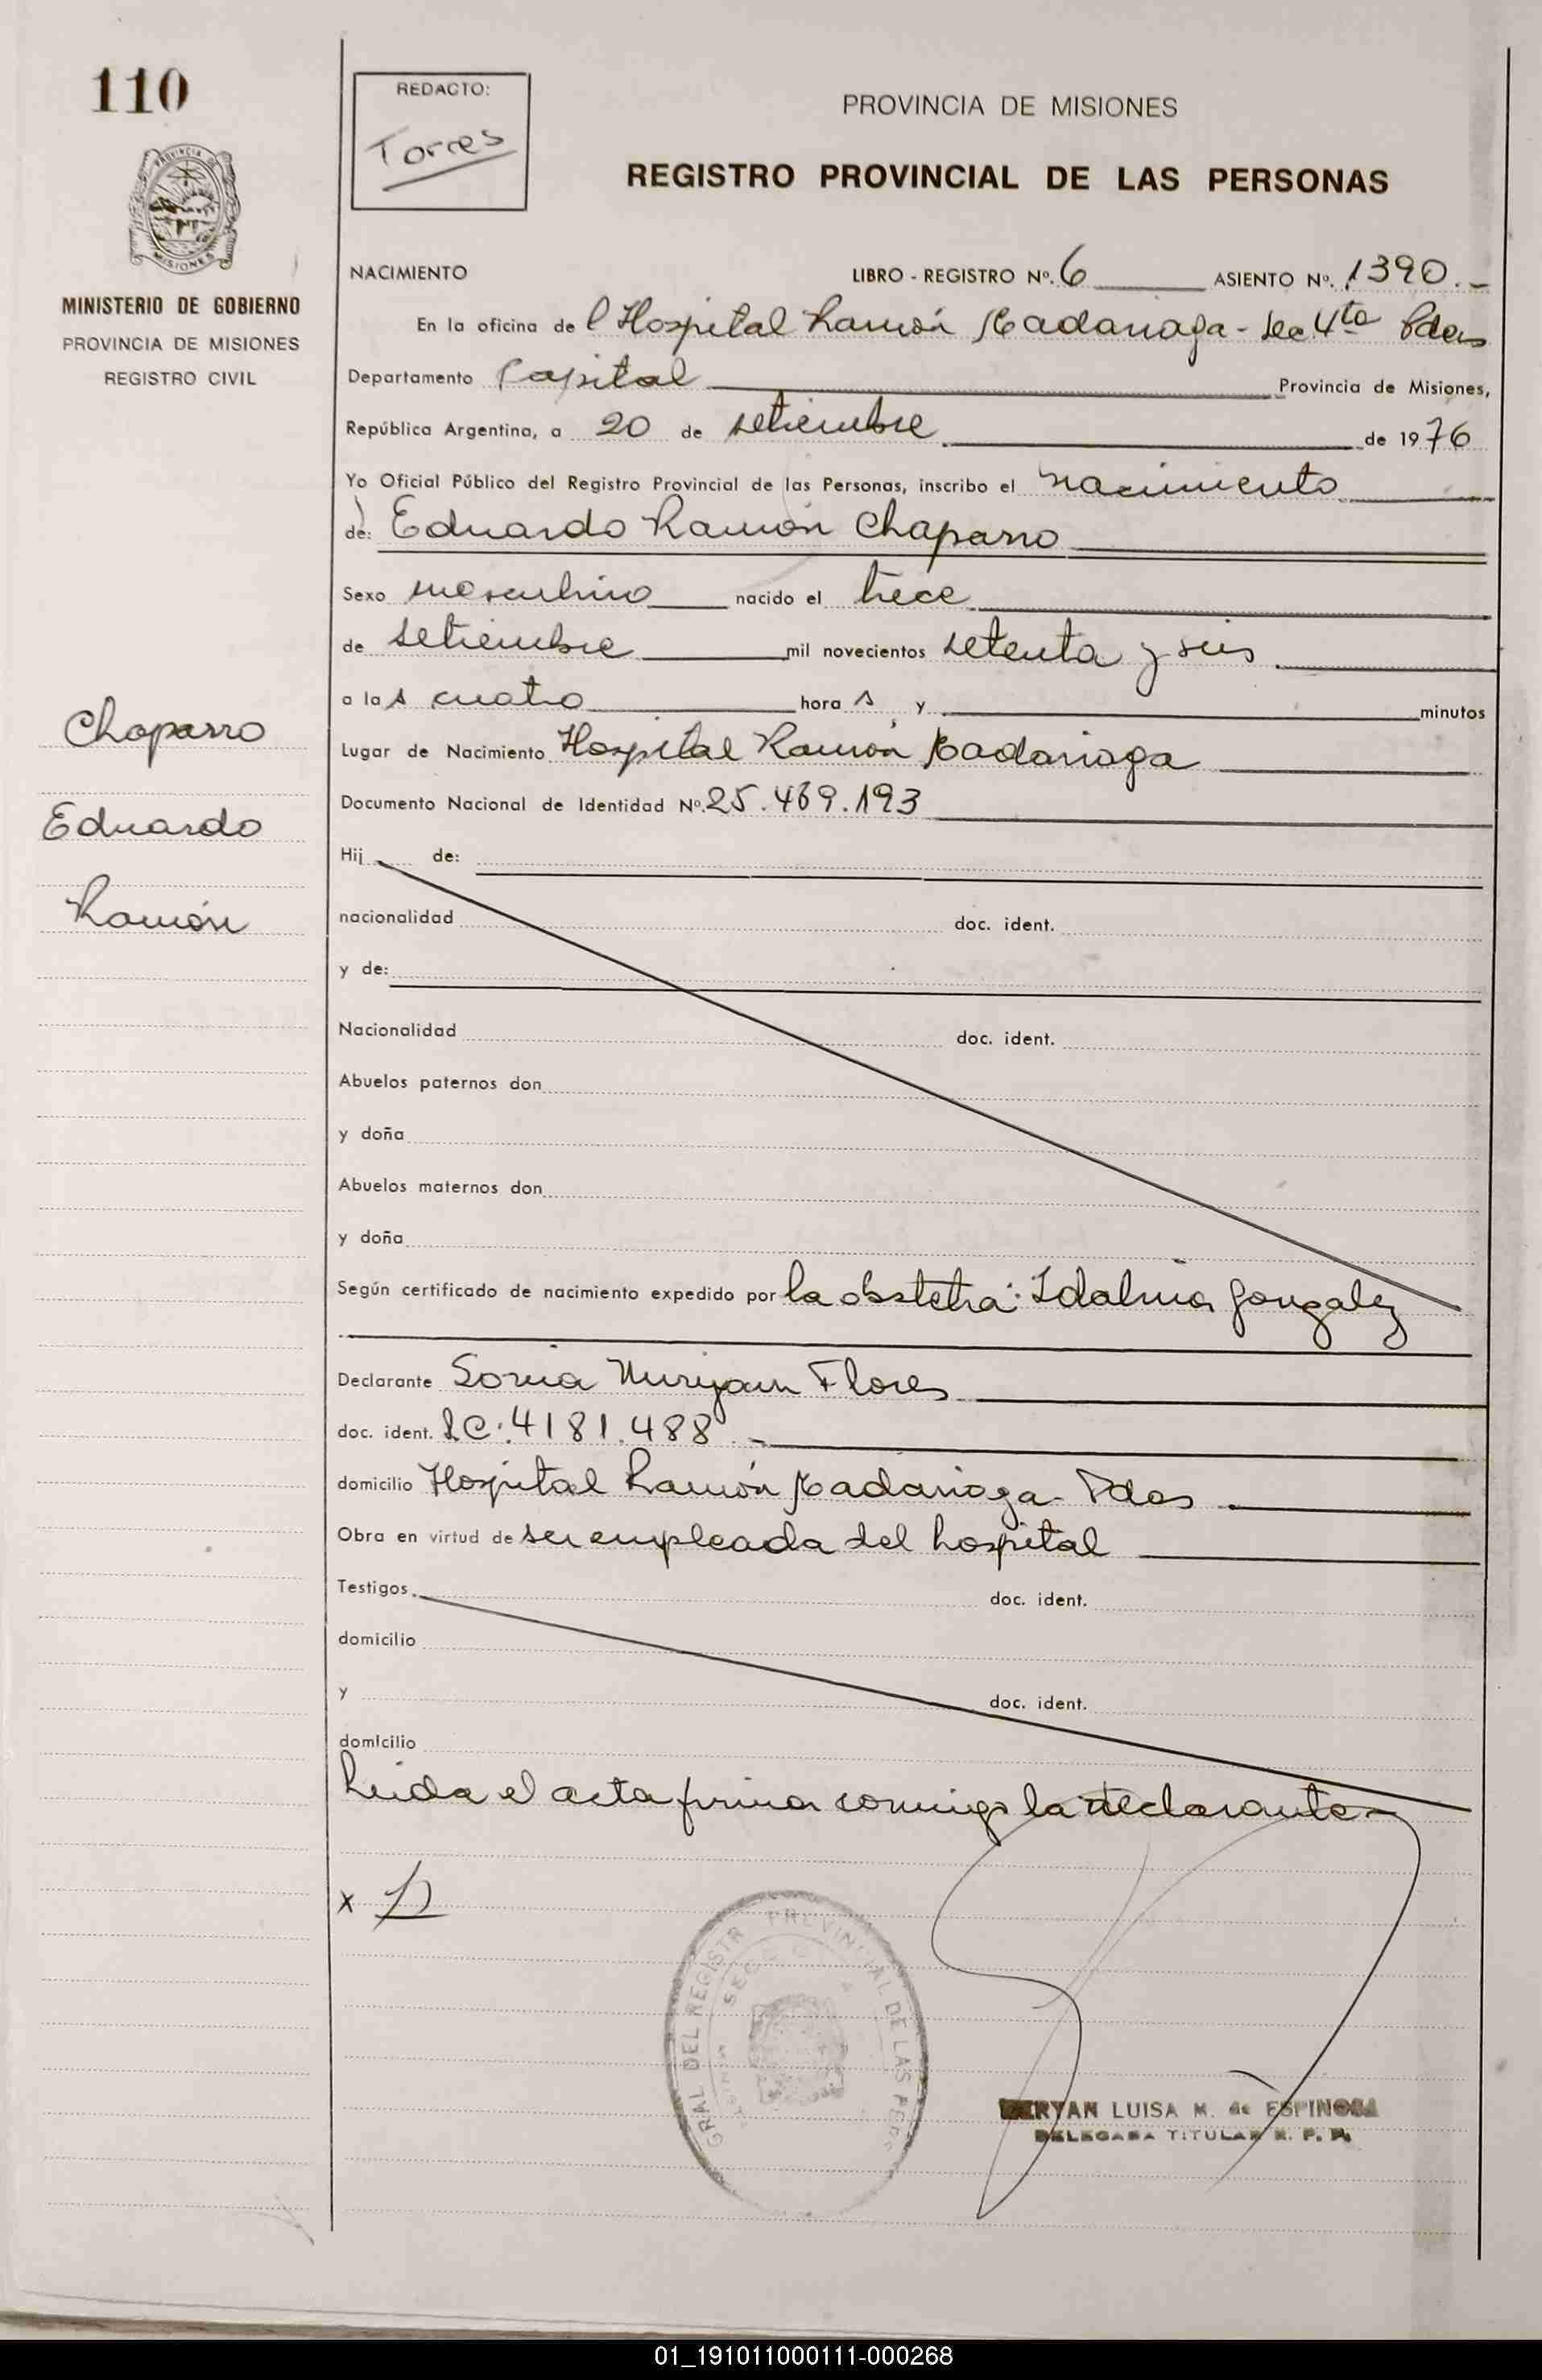 110
REDACTO:
Torres
PROVINCIA DE MISIONES
REGISTRO PROVINCIAL DE LAS PERSONAS
PROVINCIA DE
MISIONES
MINISTERIO DE GOBIERNO
PROVINCIA DE MISIONES
REGISTRO CIVIL
NACIMIENTO LIBRO - REGISTRO Nº. 6 ASIENTO Nº. 1390.-
En la oficina de l Hospital Ramón Madariaga - Sec 4ta Pdas
Departamento Capital Provincia de Misiones,
República Argentina, a 20 de setiembre de 1976
Yo Oficial Público del Registro Provincial de las Personas, inscribo el nacimiento
de: Eduardo Ramón Chaparro
Sexo masculino nacido el trece
de setiembre mil novecientos setenta y seis
a las cuatro hora s y minutos
Chaparro
Lugar de Nacimiento Hospital Ramón Madariaga
Documento Nacional de Identidad Nº. 25.469.193
Eduardo
Hij de:
Ramón
nacionalidad doc. ident.
y de:
Nacionalidad doc. ident.
Abuelos paternos don
y doña
Abuelos maternos don
y doña
Según certificado de nacimiento expedido por la obstetra: Idalina Gonzalez
Declarante Sonia Miriyam Flores
doc. ident. LC: 4181.488 -
domicilio Hospital Ramón Madariaga - Pdas
Obra en virtud de ser empleada del hospital
Testigos doc. ident.
domicilio
y doc. ident.
domicilio
Leida el acta firma conmigo la declarante-
x
GRAL DEL REGISTR PROVINCIAL DE LAS PERS
LUISA M. de ESPINOSA
DELEGADA TITULAR R. P. P.
01_191011000111-000268